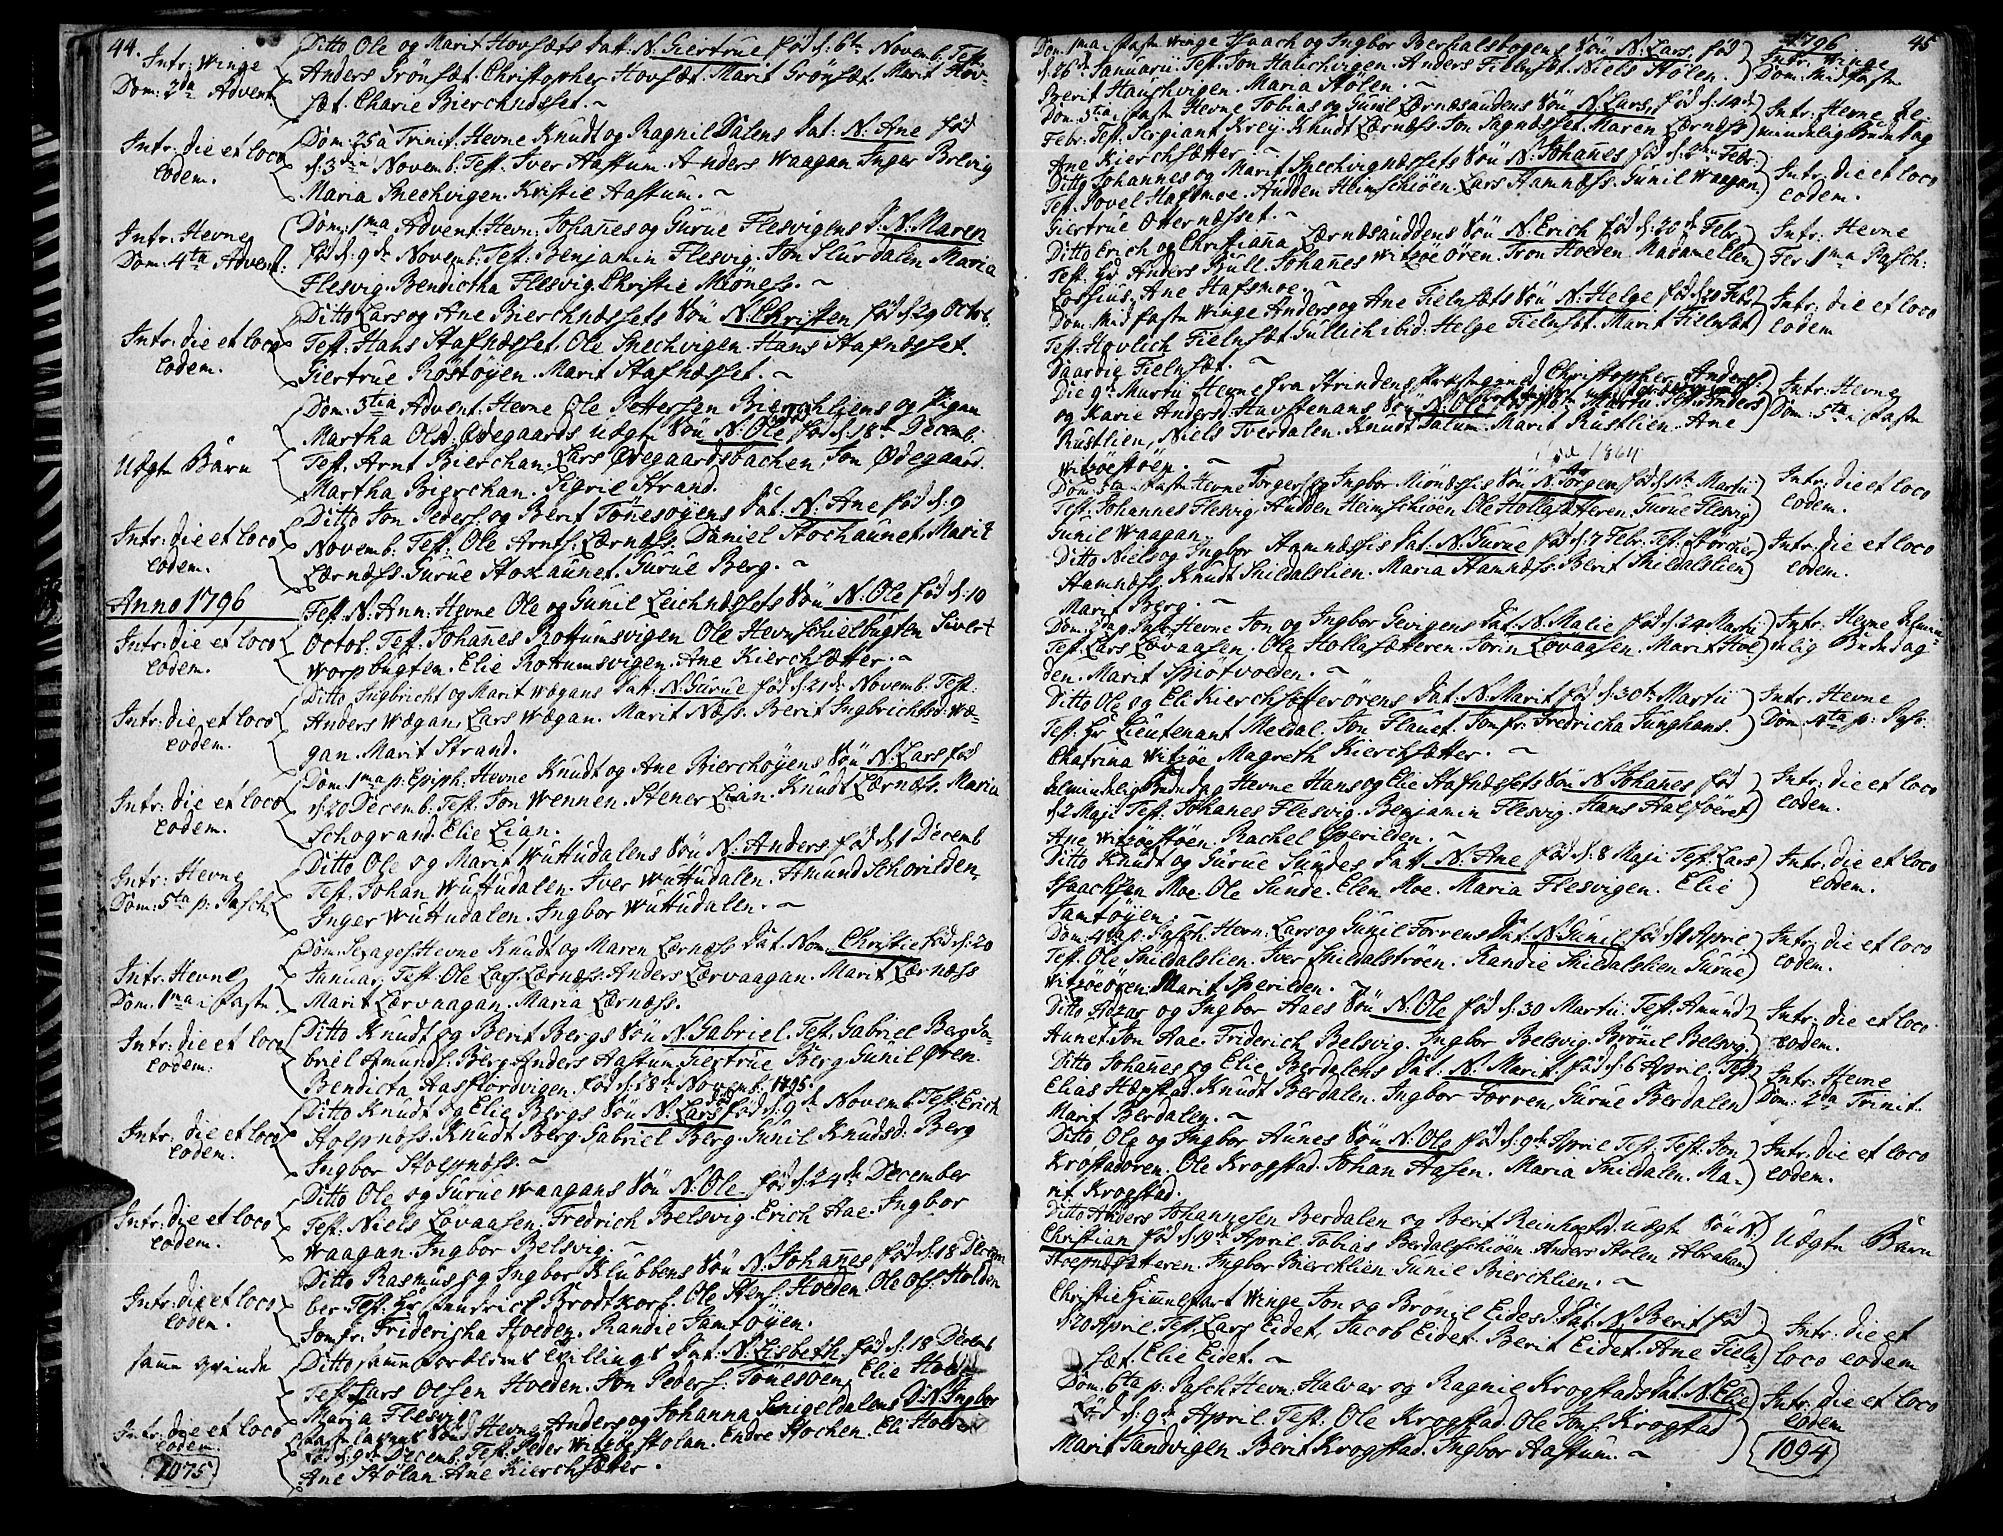 44.
Intr: Winge
Dom: 2da Advent
Ditto Ole og Marit Hovsæts Datt: N. Giertrue fød d: 6te Novemb: Test:
Anders Grönsæt. Christopher Hovsæt. Marit Grönsæt. Marit Hov-
sæt. Charie Bierchnesset. ~
Intr: die et loco
eodem.
Dom: 25 à Trinit: Hevne Knudt og Ragnil Dalens Dat: N. Ane fød
d: 3die Novemb: Test: Iver Hastum. Anders Waagan Inger Belsvig
Maria Snechvigen. Kristie Hastum. ~
Intr: Hevne
Dom: 4ta Advent:
Dom: 1ma Advent: Hevn: Johanes og Gurue Flesvigens D: N. Maren
fød d: 9de Novemb: Test: Benjamin Flesvig. Jon Slurdalen Maria
Flesvig. Bendictha Flesvig. Christie Miönes. ~
Intr: die et loco
eodem.
Ditto Lars og Ane Bierchnæssets Sön N. Christen fød d: 29 Octob:
Test: Hans Stafnesset. Ole Snechvigen. Hans Stafnesset.
Giertrue Rostöyen. Marit Stafnesset. ~
Uægte Barn
Dom: 3tia Advent: Hevne Ole Pettersen Bierchliens og Pigan
Martha Olsd: Ödegaards uægte Sön N. Ole fød d: 18de Decemb:
Test: Arnt Bierchan. Lars Ödegaardsbachen, Jon Ödegaard.
Martha Bierchan. Sigril Strand.
Intr: die et loco
eodem.
Ditto Jon Peders: og Berit Tönesöyens Dat: N. Ane fød d: 9
Novemb: Test: Ole Arnts: Lærnæss. Daniel Stochaunet. Marit
Lærnæss. Gurue Stoxaunet. Gurue Berg. ~
Anno 1796
Intr: die et loco
eodem.
Fest: N. Ann: Hevne Ole og Gunil Leichnæssets Sön N. Ole fød d: 10
Octob: Test: Johanes Rottumsvigen Ole Hevnschielbugten Sivert
Worpbugten. Elie Rottumsvigen. Ane Kierchsætter. ~
Intr: die et loco
eodem.
Ditto Ingbricht og Marit Wægans Datt: N. Gurue fød d: 21de Novemb: Test:
Anders Wægan, Lars Wægan. Marit Næss. Berit Ingbrichtsd: Wæ-
gan. Marit Strand.
Intr: die et loco
eodem.
Dom: 1ma p: Epiph: Hevne Knudt og Ane Bierchöyens Sön N. Lars fød
d: 20 Decemb: Test: Jon Wennen. Stener Lian. Knudt Lærnæss. Maria
Schogrand. Elie Lian.
Intr: Hevne
Dom: 5ta p: Pasch:
Ditto Ole og Marit Wuttudalens Sön N. Anders fød d: 1 Decemb
Test: Johan Wuttudalen. Iver Wuttudalen. Amund Schorilden.
Inger Wuttudalen. Ingbor Wuttudalen. ~
Intr: Hevne
Dom: 1ma i faste.
Dom: Sexages: Hevne Knudt og Maren Lærnæss Dat: Nom. Christie fød d: 20
Januar: Test: Ole Lars: Lærnæss. Anders Lærvaagan. Marit Lærnæss
Marit Lærvaagan. Maria Lærnæss.
Intr: die et loco
eodem.
Ditto Knudt og Berit Bergs Sön N. Gabriel. Test: Gabriel Berg
briel Amunds: Berg. Anders Hastum. Giertrue Berg. Gunil Ören.
Bendicta Hasfiordvigen. fød d: 18de Novemb: 1795.
Intr: die et loco
eodem.
Ditto Knudt og Elie Bergs Sön N. Lars fød d: 9de Novemb: Test: Erich
Stolpnæss. Knudt Berg. Gabriel Berg. Gunil Knudsd: Berg
Ingbor Stolpnæss. ~
Intr: die et loco
eodem.
Ditto Ole og Gurue Waagans Sön N. Ole fød d: 24de December
Test: Niels Lövaasen. Fredrich Belsvig. Erich Hae. Ingbor
Waagan. Ingbor Belsvig. ~
Intr: die et loco
eodem.
Ditto Rasmus og Ingbor Klubbens Sön N. Johanes fød d: 18 Decem
ber Test: Hr Brodtkorb. Ole Stens: Hoeden. Ole Ols: Holden
Jomfr: Friderischa Hoeden. Randie Samtöyen.
samme qvinde
Ditto samme forældres tvillings Dat: N. Lisbeth fød d: 18 Decemb
Test: Lars Olsen Hoeden. Jon Peders: Tönesöen. Elie
Maria Flesvig
Intr: die et loco
eodem.
Hevne Anders og Johanna Snigeldalens D: N. Ingbor
fød d: 9de Decemb: Test: Peder Witzöe Stolan. Endre Stochen. Eli
Ane Stölan. Ane Kierchsætter.
1075
45
1796
Dom: 1ma i faste Winge Isaach og Ingbor Berfalskogens Sön N. Lars fød
d: 26de Januarii: Test: Jon Hauchvigen. Anders Fielnsæt. Niels Stölen.
Berit Hauchvigen. Maria Stölen. ~
Intr: Winge
Dom: Midfaste
Dom: 3tia i faste Hevne Tobias og Gunil Lærnæsaudens Sön N. Lars, fød d: 14de
Febr: Test: Sergiant Krey. Knudt Lærnæss. Jon Sagnæsset. Maren Lærnæss
Ane Kierchsætter. ~
Intr: Hevne Al-
mindelig Bededag
Ditto Johannes og Marit Snechvignæssets Sön N. Johanes fød d: Febr:
Test: Povel Hafsmoe. Audden Heimschiöen. Lars Hamnæss. Gunil Waagan
Giertrue Otternæsset. ~
Intr: die et loco
eodem.
Ditto Erich og Christianna Lærnæsauddens Sön N. Erich fød d: 20de Febr:
Test: Hr Anders Bull. Johanes Witzöeören. Tron Hoeden. Madame Ellen
Lossius, Ane Hafsmoe. ~
Intr: Hevne
Fer: 1ma Pasch:
Dom: Midfaste Winge Anders og Ane Fielnsæts Sön N. Helge fød d: 20 Febr:
Test: Hovlich Fielnsæt. Gullich ibid: Helge Fielnsæt. Marit Fielnsæt
Daardig Fielnsæt. ~
Intr: die et loco
eodem
Die 9de Martii Hevne fra Strindens Præstegield Christopher Anders:
og Marie Andersd: Havstenans Sön N. Ole Martii Test: Anders
Rustlien, Niels Tverdalen. Knudt Salum. Marit Rustlien. Ane
Witzöestöen. ~
Intr: Hevne
Dom: 5ta i faste
1864
Dom: 5ta i faste Hevne Torger og Ingbor Miönæssets Sön N. Jörgen fød d: 1te Martii
Test: Johannes Flesvig, Audden Heimschiöen Ole Hollasetteren. Gurue Flesvig
Gunil Waagan.
Intr: die et loco
eodem.
Ditto Niels og Ingbor Hamnæssets Dat: N. Gurue fød d: 7 Febr: Test: Störcher
Hamnæss, Knudt Snildalslien. Maria Hamnæss. Berit Snildalslien
Marit Berg. ~
Intr: die et loco
eodem.
Dom: Palm: Hevne Jon og Ingbor Gevigens Dat: N. Malie fød d: 24 Martii
Test: Lars Lövaasen. Ole Hollasetteren. Torin Lövaasen. Marit Hoe-
den. Marit Spiötvolden. ~
Intr: Hevne Almin-
nelig Bededag
Ditto Ole og Eli Kierchsætterörens Dat: N. Marit fød d: 30te Martii
Test: Hr Lieutenant Meldal. Jon Flauet. Jomfr: Fredricha Junghans.
Chatrina Witzöe Magreth Kierchsætter. ~
Intr: Hevne
Dom: 4ta p: Pasc:
Almindelig Bededag Hevne Hans og Elie Stafnæssets Sön N. Johanes fød
d: 2 Maji Test: Johanes Flesvig. Benjamin Flesvig. Hans Halsöeret
Ane Witzöestöen. Rachel Sperilden. ~
Intr: die et loco
eodem.
Ditto Knudt og Gurue Sundes Datt: N. Ane fød d: 8 Maji Test: Lars
Isaachsen Moe. Ole Sunde. Elen Moe. Maria Flesvigen. Elie
Samtöyen. ~
Intr: die et loco
eodem.
Dom: 4ta p: Pasch: Hevn: Lars og Gunil Torrens Dat: N. Gunil fød d: 1 April
Test: Ole Snildalslien. Iver Snildalströen. Randie Snildalslien Gurue
Witzöeören. Marit Sperilden. ~
Intr: die et loco
eodem.
Ditto og Ingbor Haes Sön N. Ole fød d: 30 Martii: Test: Amund
Aunet. Jon Hae. Friderich Belsvig. Ingbor Belsvig. Brönil Belsvig.
Intr: die et loco
eodem.
Ditto Johanes og Elie Berdalens Dat: N. Marit fød d: 6 April. Test:
Elias Hæpstad. Knudt Berdalen. Ingbor Torren, Gurue Berdalen
Marit Berdalen. ~
Intr: Hevne
Dom: 2da Trinit.
Ditto Ole og Ingbor Aunes Sön N. Ole fød d: 9de April Test: Test: Jon
Krostadören. Ole Krogstad. Johan Hasen. Maria Snildalen. Ma-
rit Krogstad.
Intr: die et loco
eodem.
Ditto Anders Johannesen Berdalen og Berit Reinhoetsd: uægte Sön N.
Christian fød d: 19de April. Tobias Berdalschiöen. Anders Stolen Abraham
Stolpnesetteren. Ingbor Bierchlien Gunil Bierchlien. ~
Uægte Barn
Christie Himmelfart Winge Jon og Brönil Eides Dat: N. Berit fød
d: 20 April. Test: Lars Eidet, Jacob Eidet. Berit Eidet. Ane Fieln
sæt. Elie Eidet. ~
Intr: die et
loco eodem
Dom: 6ta p: Pasch Hevn: Halvar og Ragnil Krogstads Dat: N. Elie
fød d: 9de April. Test: Ole Krogstad. Ole Jons: Krogstad
Marit Sandvigen. Berit Krogstad. Ingbor Hastum. ~
Intr: die et loco
eodem
1094